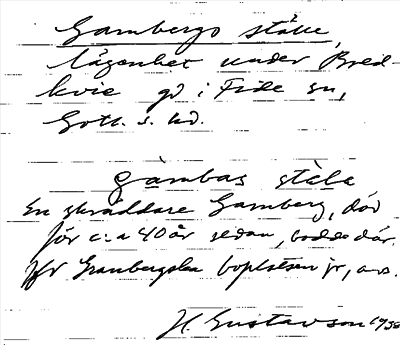 Gambergs ställe,
lägenhet under Bred-
kvie gd i Fide sn,
Gotl. s. hd.
gàmbas stèlе
En skräddare Gamberg, död
för c:a 40 år sedan, bodde där.
Jfr Granbergska boplatsen
H. Gustavson 1938